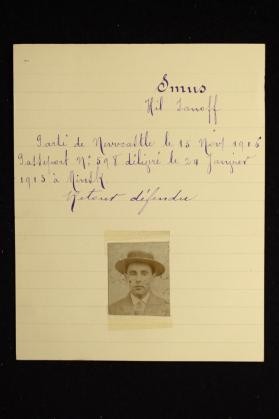 Smus
Hil Sanoff
Parti de Newcastle le 15 Nov 1915
Passeport N° 598 délivré le 24 Janvier
1915 à Minsk
Retour défendu